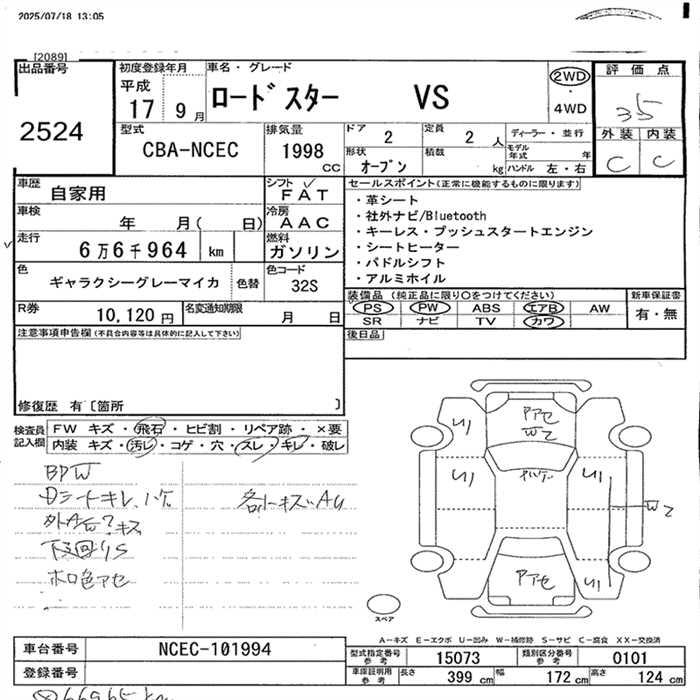 2025/07/18 13:05
[2089]
出品番号
2524
初度登録年月
平成
17 9 月
車名・グレード
ロードスター VS
2WD
・
4WD
評価点
3.5
外装 内装
C C
型式
CBA-NCEC
排気量
1998
CC
ドア
2
定員
2 人
形状
オープン
積載
kg
ディーラー・並行
モデル
年式 年
ハンドル 左・右
車歴
自家用
シフト
FAT
車検
年 月( 日)
冷房
AAC
走行
6万6千964 km
燃料
ガソリン
色
ギャラクシーグレーマイカ
色替
色コード
32S
R券
10,120 円
名変通知期限
月 日
セールスポイント(正常に機能するものに限ります)
・革シート
・社外ナビ/Bluetooth
・キーレス・プッシュスタートエンジン
・シートヒーター
・パドルシフト
・アルミホイル
装備品 (純正品に限り〇をつけてください)
PS PW ABS エアB AW
SR ナビ TV カワ
新車保証書
有・無
後日品
注意事項申告欄(不具合内容等は具体的に記入して下さい)
修復歴 有〔箇所 〕
検査員
記入欄
FW キズ・飛石・ヒビ割・リペア跡・×要
内装 キズ・汚レ・コゲ・穴・スレ・キレ・破レ
BPW
Dシートキレ、ハゲ
各部キズ、AU
下廻りS
ホロ色アセ
U1
Pアセ
W2
U1
U1
U1
W2
Pアセ
U1
スペア
A-キズ E-エクボ U-凹み W-補修跡 S-サビ C-腐食 XX-交換済
車台番号
NCEC-101994
登録番号
型式指定番号
参考
15073
類別区分番号
参考
0101
車庫証明用
参考
長さ 399 cm 幅 172 cm 高さ 124 cm
66965km